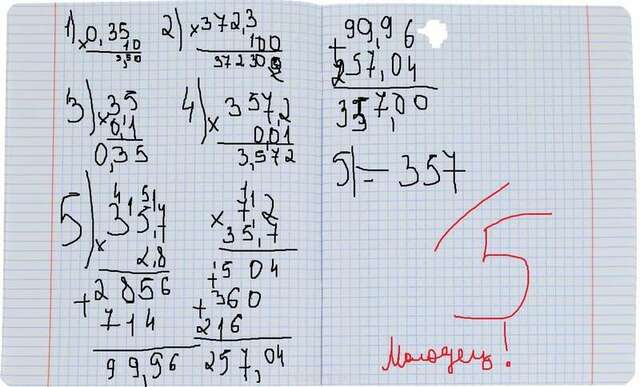 1) ×0,35
10
3,50
2) ×372,3
100
37230
3) ×35
0,1
0,35
4) ×357,2
0,01
3,572
5) ×35,7
2,8
+2856
714
99,96
×7,2
35,7
+504
+360
216
257,04
+99,96
257,04
357,00
5) = 357
5
Молодец!